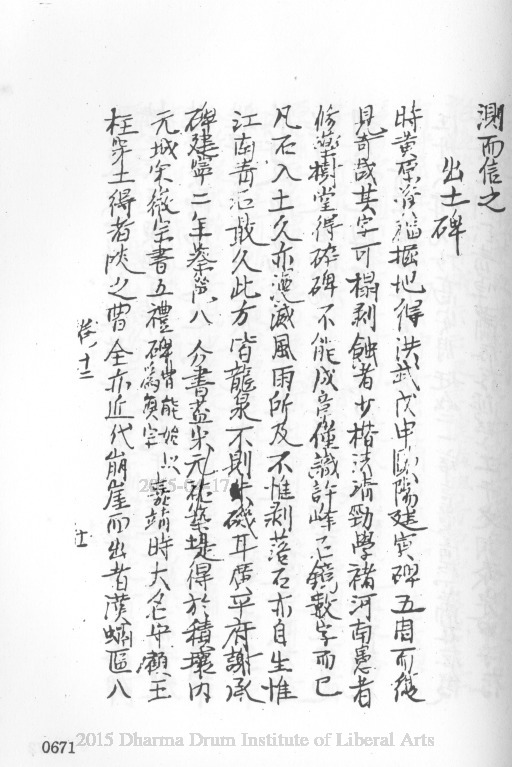 測而信之
出土碑
時黃原＿掘地得洪武戊申歐陽＿碑五周而復
見奇哉其字可榻剥蝕者少楷法清勁學褚河南愚者
修藥樹堂得碎碑不能成章僅識許峰石鏡數字而已
凡石入土久亦漫滅風雨所及不惟剥落石亦自生惟
江南青石耐久此方皆龍泉不則＿磯耳廣平府謝承
碑建寧二年蔡邕八分書葢宋元祐築堤得於積壤內
元城宋徽宗書五禮碑 嘉靖時大名守顧王
枉穿土得者陜之曹全亦近代崩崖而出者漢蝸區八
卷十二
2015 Dharma Drum Institute of Liberal Arts
0671